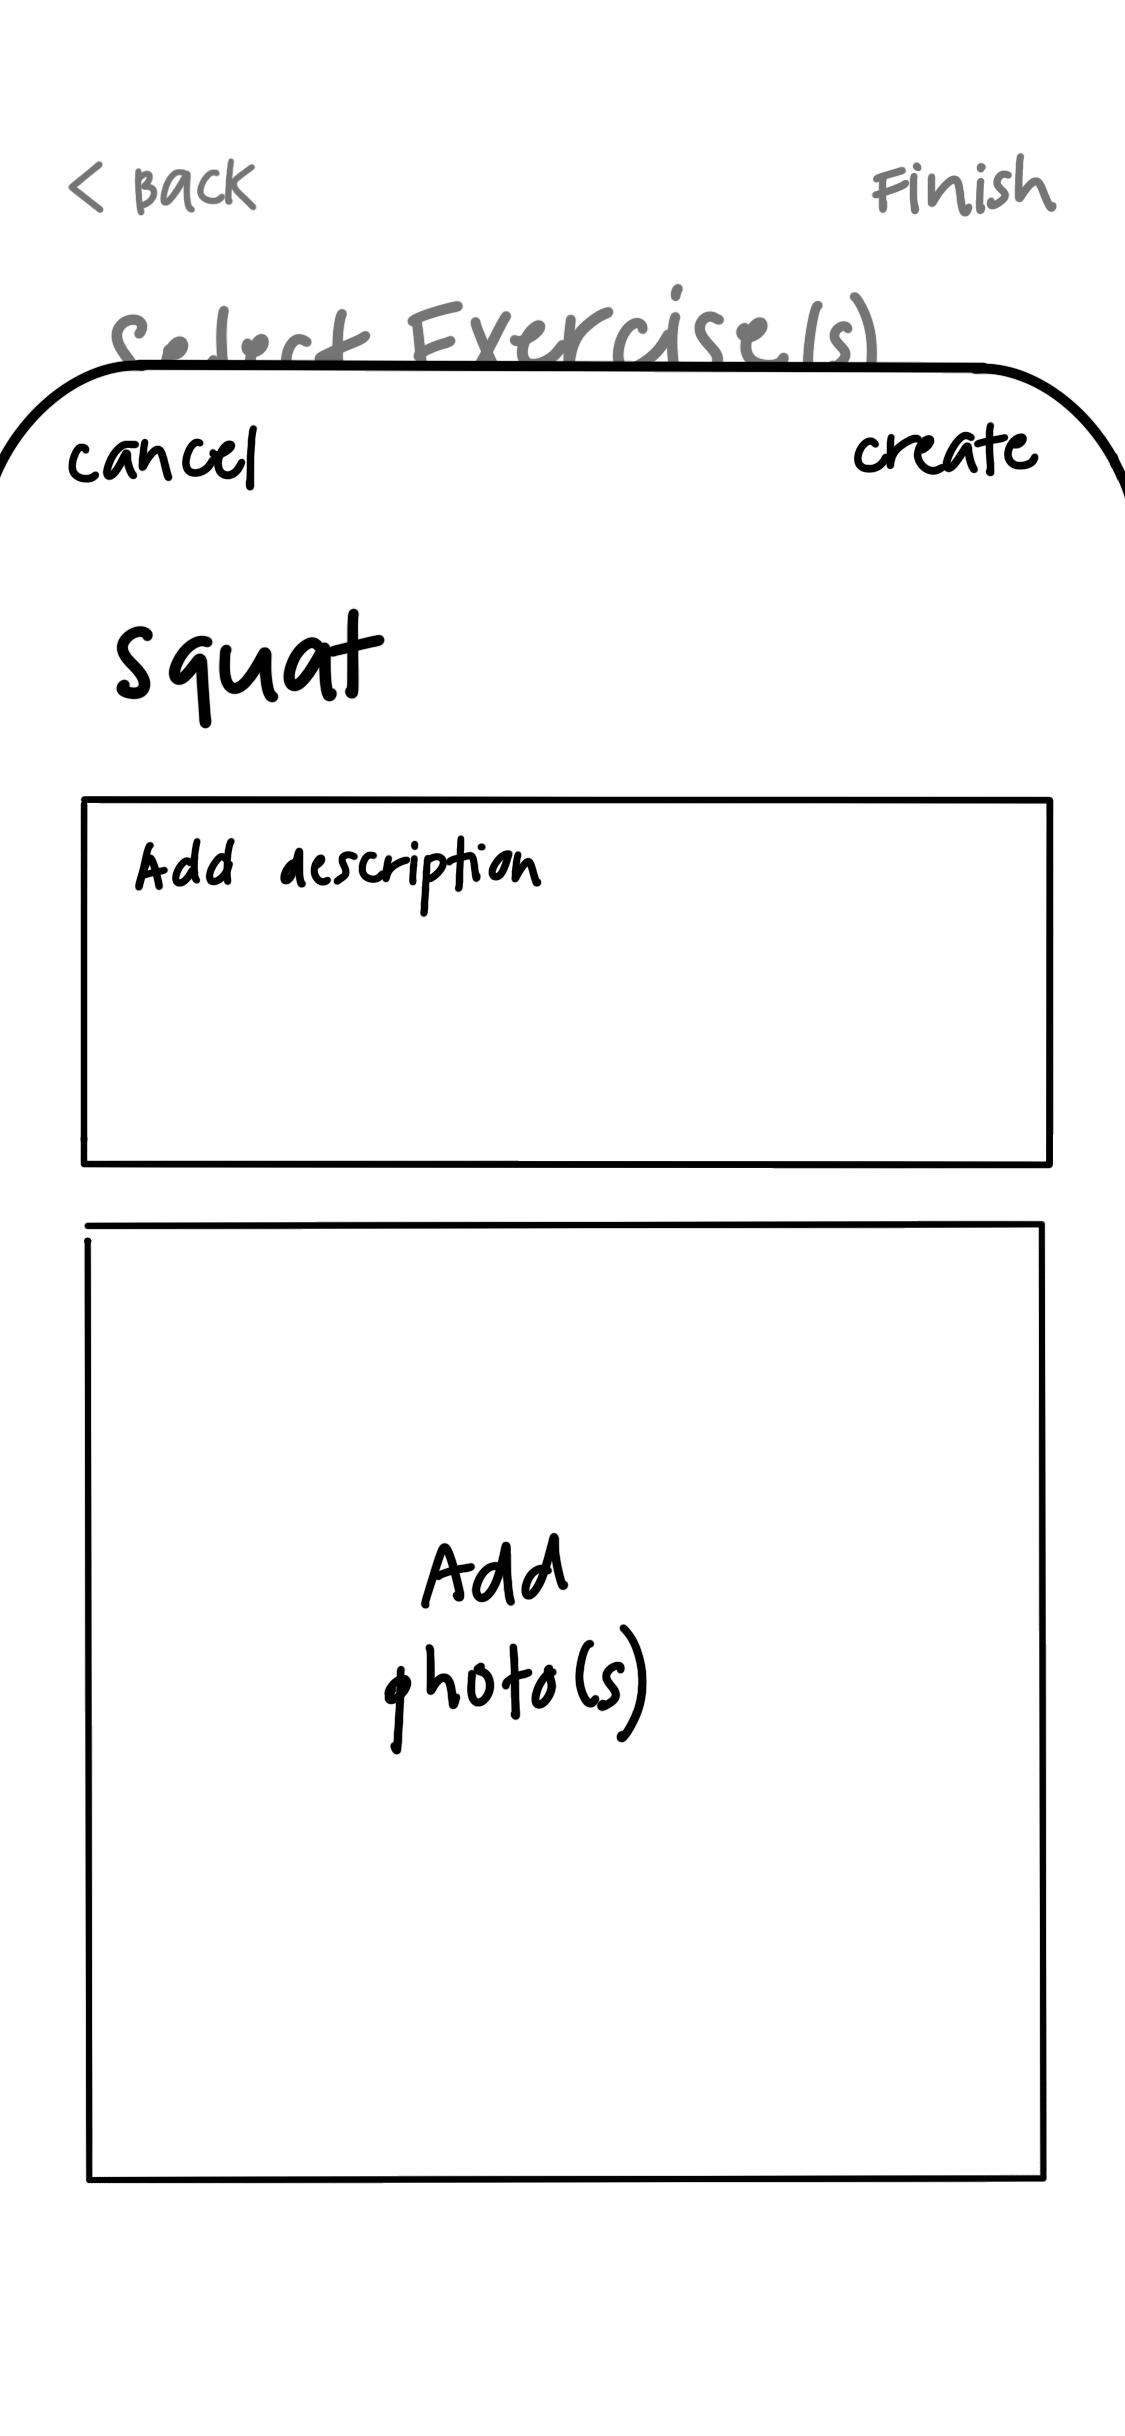 < Back Finish
Select Exercise(s)
cancel create
squat
Add description
Add
photo(s)